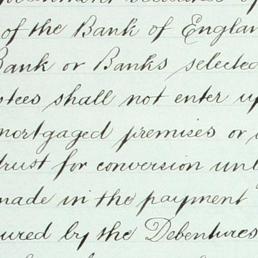 of the Bank of Englan
Bank or Banks selected
stees shall not enter up
mortgaged premises or
trust for conversion unl
made in the payment
ured by the Debentures